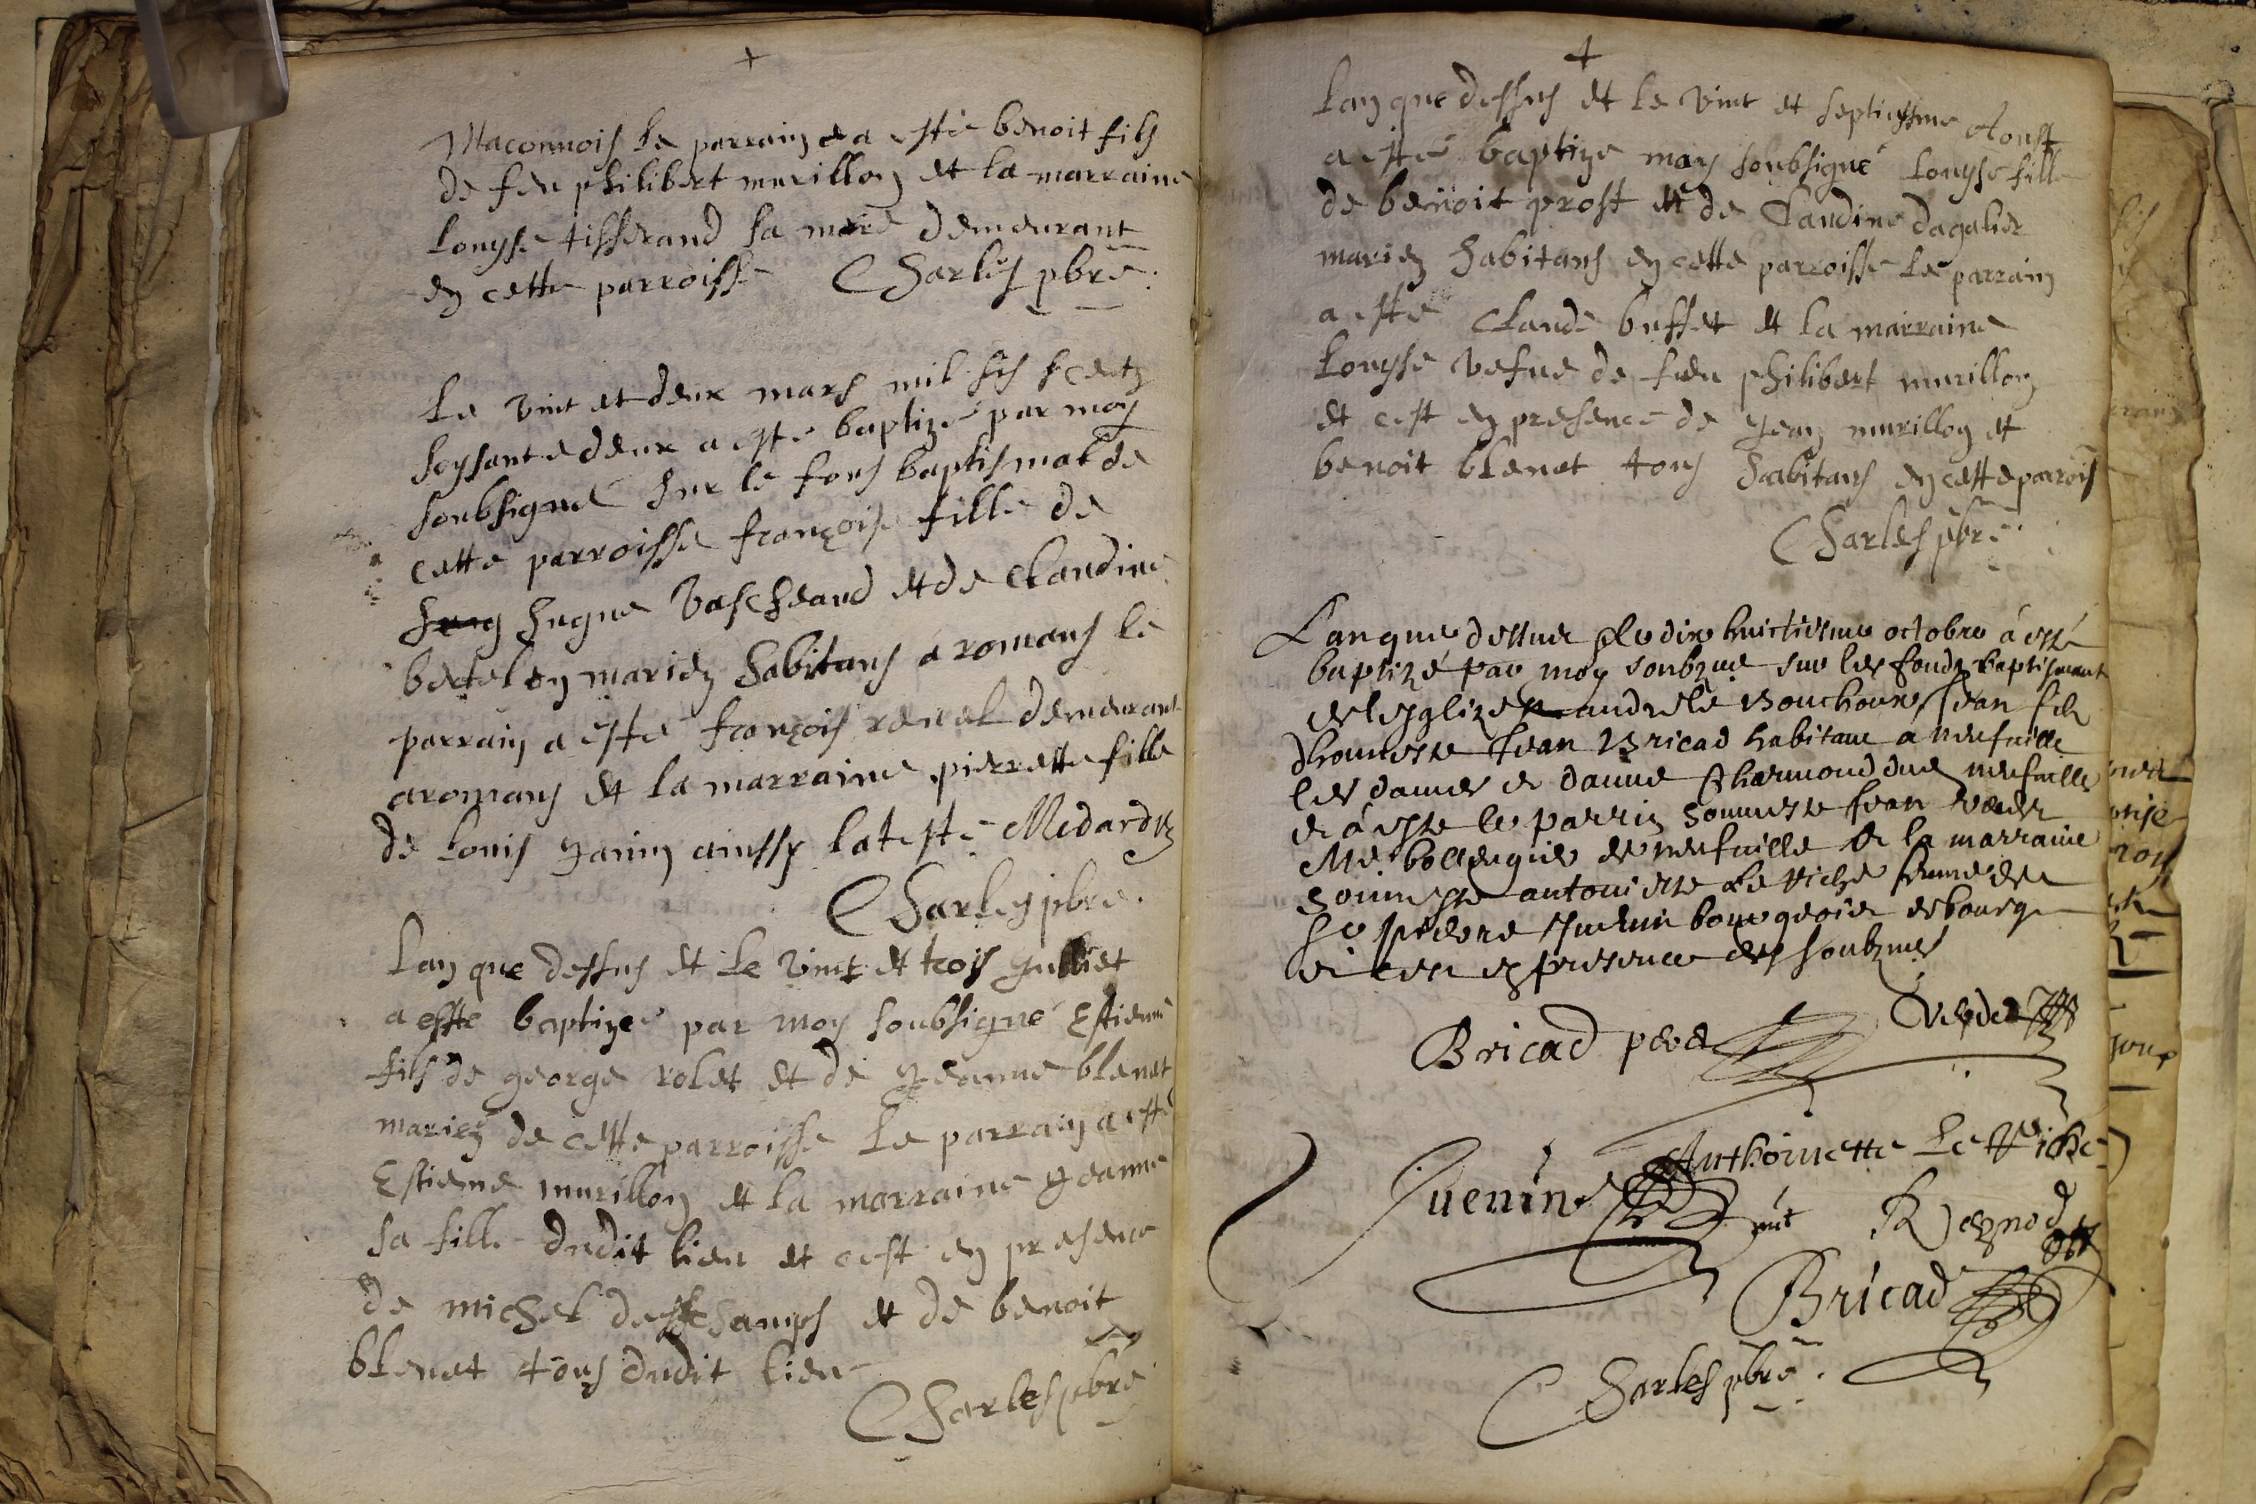 +
Maconnois le parrain a esté benoit fils
de feu philibert murillon et la marraine
Louyse tisserand sa mere demeurant
en cette parroisse Charles pbre.
Le vint et deux mars mil sis scentz
soysante deux a este baptizé par moy
soubsigné sur le fons baptismal de
cette parroisse françoise fille de
hugue vascheard et de claudine
mariez habitans a romans le
parrain a esté françois renel demeurant
a romans et la marraine pierrette fille
de Louis Janin ainssy lateste Medardz
Charles pbre.
Lan que dessus et le vint et trois Julliet
a esste baptize par moy soubsigné Estienne
fils de george rolet et de Jeanne blenet
mariez de cette parroisse Le parrain a esté
Estienne murillon et la marraine Jeanne
sa fille dudit lieu et cest en presence
de michel deschamps et de benoit
blenet tous dudit lieu
Charles pbre
+
Lan que dessus et le vint et septiesme Aoust
a esté baptize moy soubsigné Louyse fille
de benoit prost et de Claudine dagalier
mariez habitans en cette parroisse Le parrain
a esté Claude buffet et la marraine
Louysse vefue de feu philibert murillon
et cest en presence de Jean murillon et
benoit blenet tous habitans en cette parrois
Charles pbre.
Lan que dessus le dix huictiesme octobre à esté
baptizé par moy soubzne sur les fondz baptismaut
de leglize Jean filz
dhonneste Jean Bricad habitant a neufuille
les dames et danne neufuille
et à este le parrin honneste Jean
de neufuille et la marraine
honneste antoinette Le Riche femme de
Sr Juenin bourgeois de bourg
et cest en presence des soubznes
Bricad pere
Juenin Anthoinette Le Riche
Reynod
Bricad
Charles pbre.